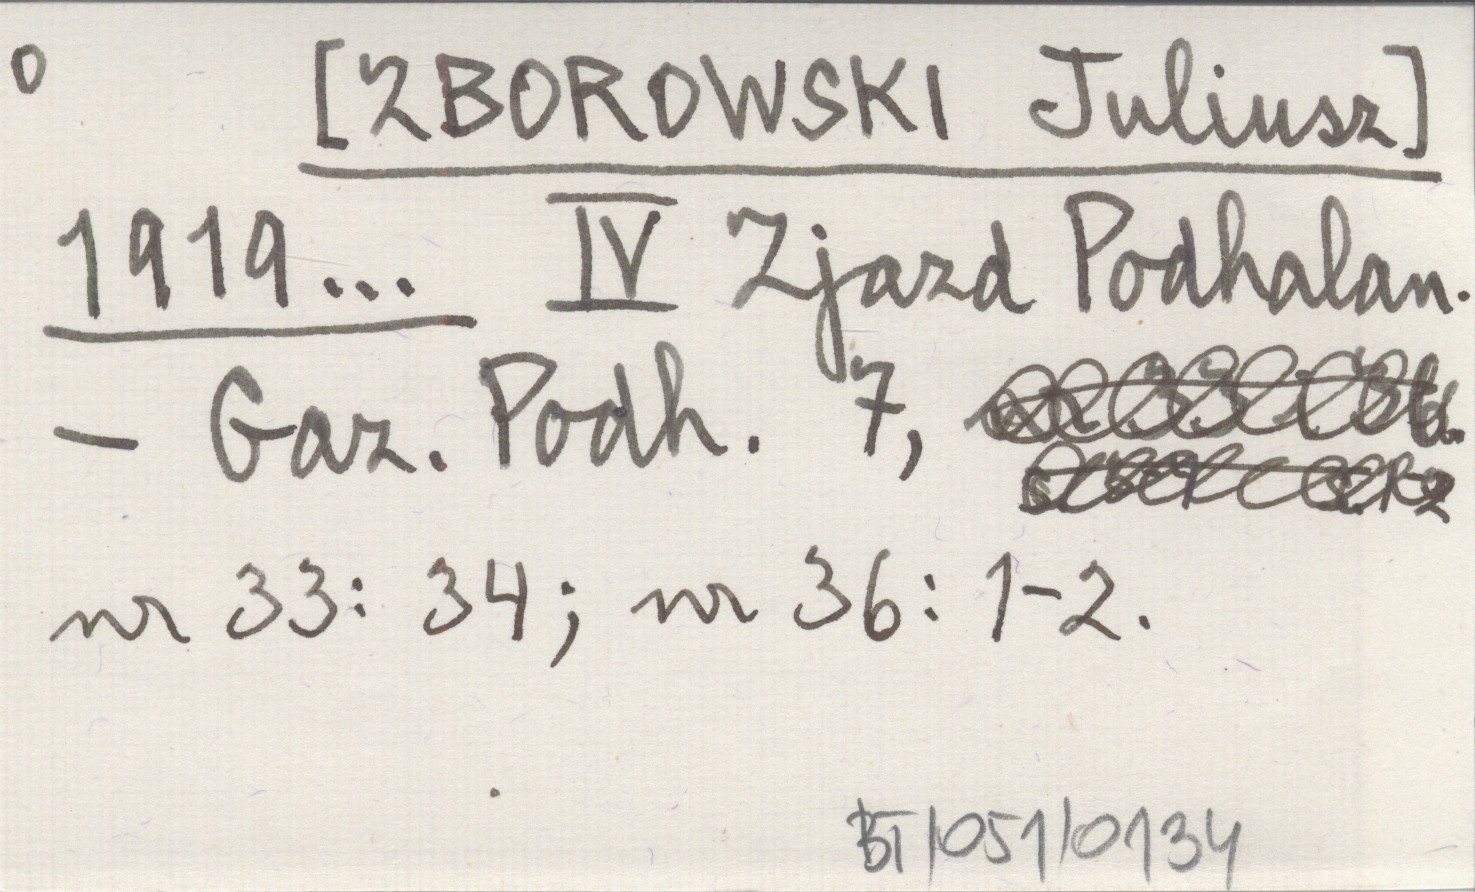 o [ZBOROWSKI Juliusz]
1919... IV Zjazd Podhalan.
- Gaz. Podh. 7,
nr 33: 34; nr 36: 1-2.
BT/051/0134